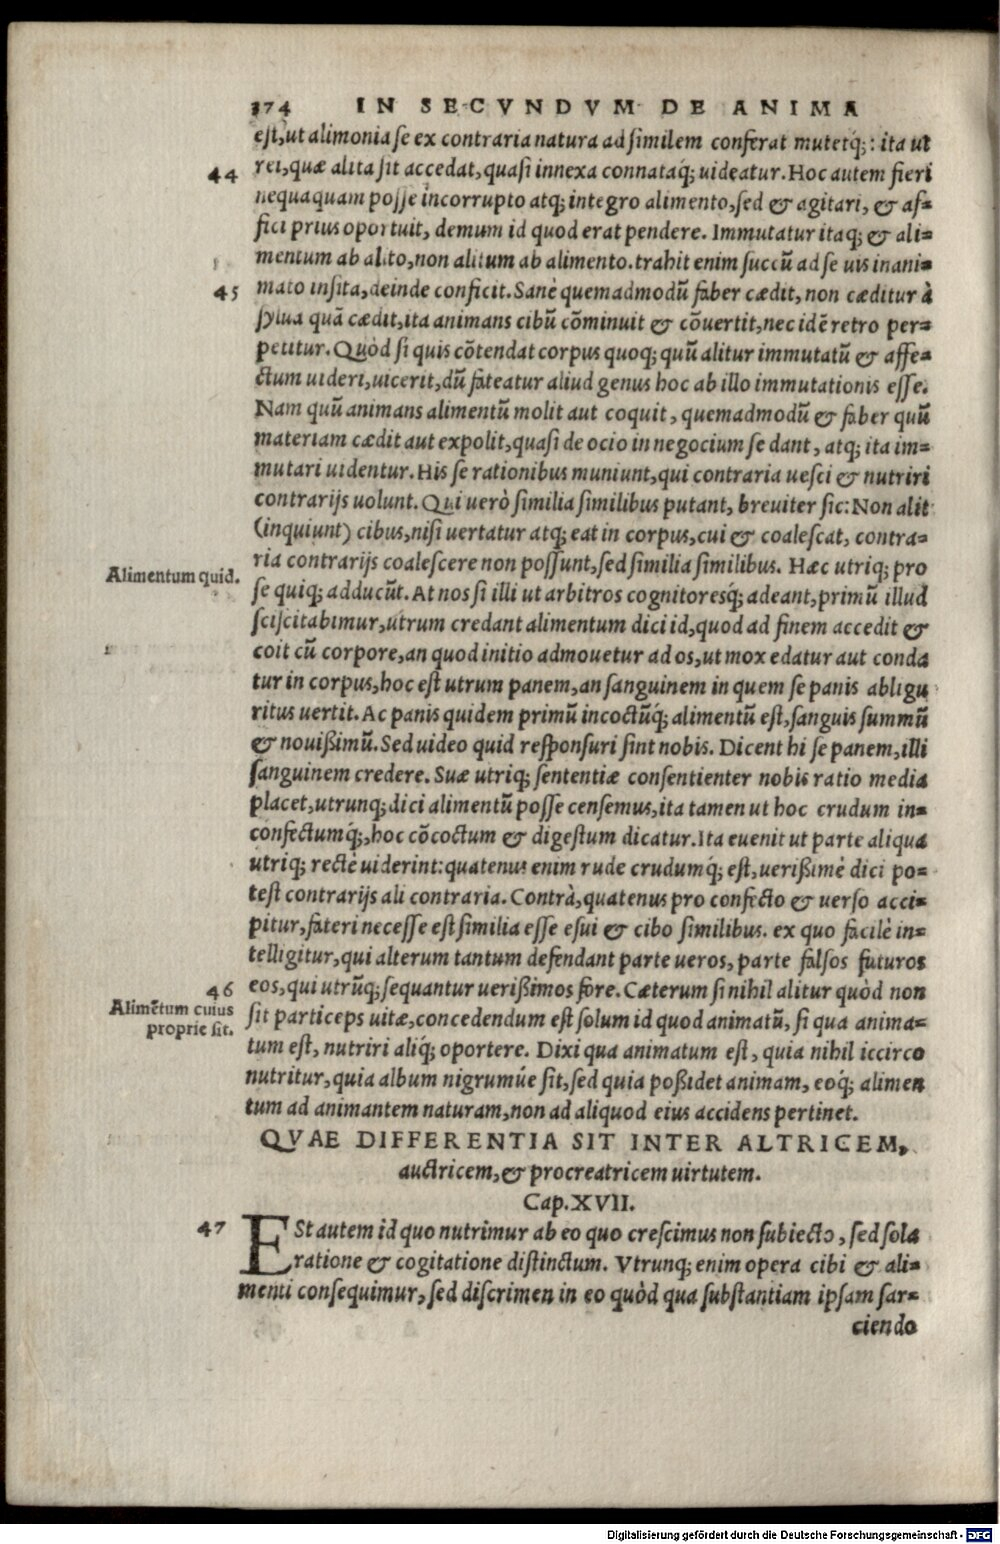 374 IN SECVNDVM DE ANIMA
est, ut alimonia se ex contraria natura ad similem conferat mutetq́;: ita ut
44 rei, quæ alita sit accedat, quasi innexa connataq́; uideatur. Hoc autem fieri
nequaquam posse incorrupto atq; integro alimento, sed & agitari, & af=
fici prius oportuit, demum id quod erat pendere. Immutatur itaq; & ali=
mentum ab alito, non alitum ab alimento. trahit enim succū ad se uis inani=
45 mato insita, deinde conficit. Sanè quemadmodū faber cædit, non cæditur à
sylua quā cædit, ita animans cibū cōminuit & cōuertit, nec idē retro per=
petitur. Quòd si quis cōtendat corpus quoq; quū alitur immutatū & affe=
ctum uideri, uicerit, dū fateatur aliud genus hoc ab illo immutationis esse.
Nam quū animans alimentū molit aut coquit, quemadmodū & faber quū
materiam cædit aut expolit, quasi de ocio in negocium se dant, atq; ita im=
mutari uidentur. His se rationibus muniunt, qui contraria uesci & nutriri
contrarijs uolunt. Qui uerò similia similibus putant, breuiter sic: Non alit
(inquiunt) cibus, nisi uertatur atq; eat in corpus, cui & coalescat, contra=
ria contrarijs coalescere non possunt, sed similia similibus. Hæc utriq; pro
Alimentum quid.
se quiq; adducūt. At nos si illi ut arbitros cognitoresq́; adeant, primū illud
sciscitabimur, utrum credant alimentum dici id, quod ad finem accedit &
coit cū corpore, an quod initio admouetur ad os, ut mox edatur aut conda
tur in corpus, hoc est utrum panem, an sanguinem in quem se panis abligu
ritus uertit. Ac panis quidem primū incoctūq́; alimentū est, sanguis summū
& nouißimū. Sed uideo quid responsuri sint nobis. Dicent hi se panem, illi
sanguinem credere. Suæ utriq; sententiæ consentienter nobis ratio media
placet, utrunq; dici alimentū posse censemus, ita tamen ut hoc crudum in=
confectumq́;, hoc cōcoctum & digestum dicatur. Ita euenit ut parte aliqua
utriq; rectè uiderint: quatenus enim rude crudumq́; est, uerißimè dici po=
test contrarijs ali contraria. Contrà, quatenus pro confecto & uerso acci=
pitur, fateri necesse est similia esse esui & cibo similibus. ex quo facilè in=
telligitur, qui alterum tantum defendant parte ueros, parte falsos futuros
46 eos, qui utrūq; sequantur uerißimos fore. Cæterum si nihil alitur quòd non
Alimētum cuius
proprie sit.
sit particeps uitæ, concedendum est solum id quod animatū, si qua anima=
tum est, nutriri aliq́; oportere. Dixi qua animatum est, quia nihil iccirco
nutritur, quia album nigrumúe sit, sed quia poßidet animam, eoq́; alimen
tum ad animantem naturam, non ad aliquod eius accidens pertinet.
QVAE DIFFERENTIA SIT INTER ALTRICEM,
auctricem, & procreatricem uirtutem.
Cap. XVII.
47 ESt autem id quo nutrimur ab eo quo crescimus non subiecto, sed sola
ratione & cogitatione distinctum. Vtrunq; enim opera cibi & ali=
menti consequimur, sed discrimen in eo quòd qua substantiam ipsam sar=
ciendo
Digitalisierung gefördert durch die Deutsche Forschungsgemeinschaft - DFG